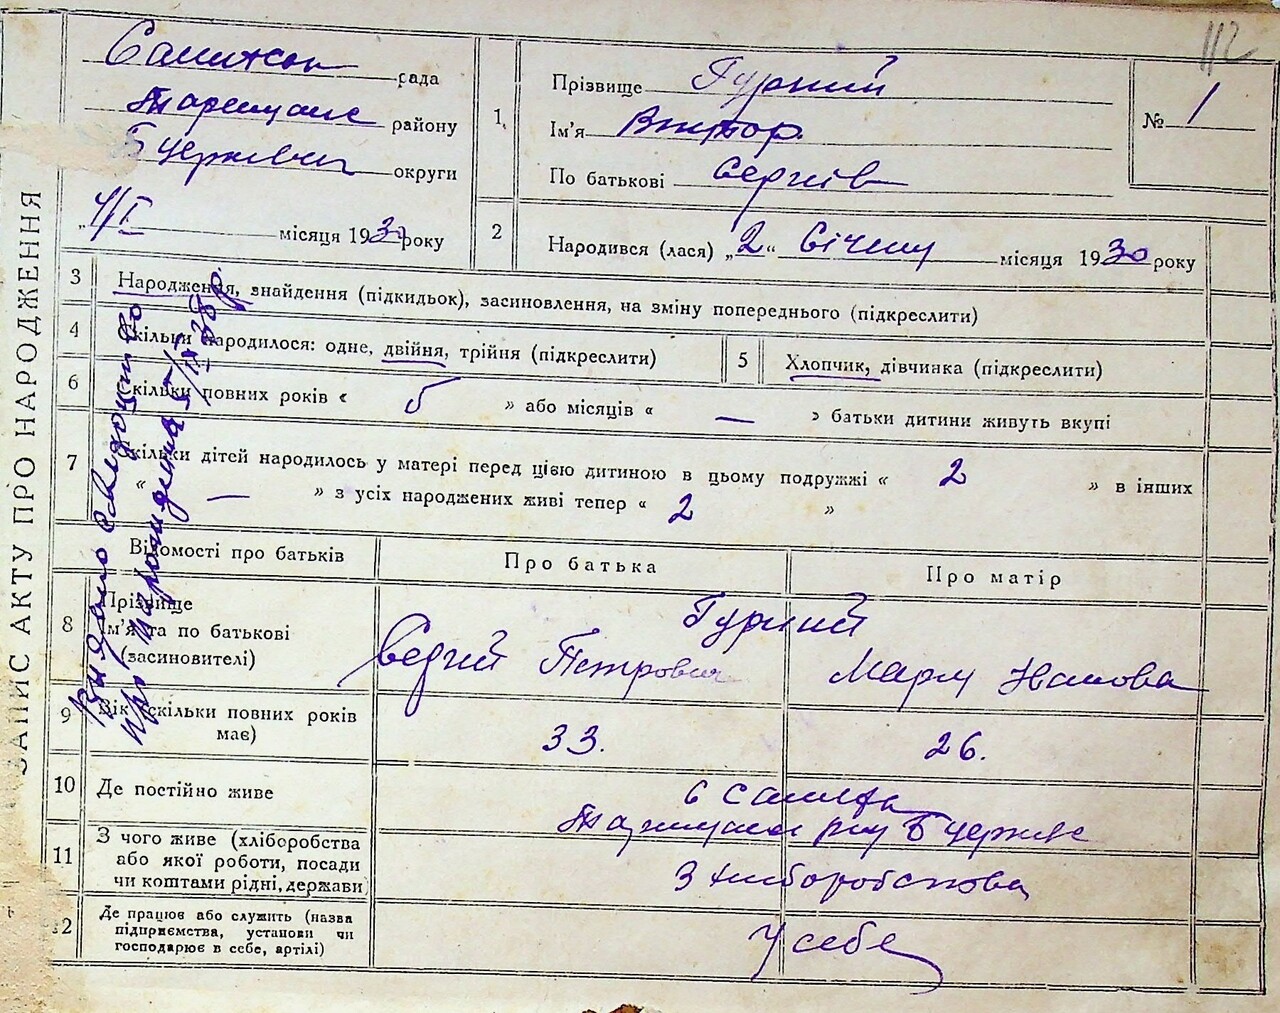 112
ЗАПИС АКТУ ПРО НАРОДЖЕННЯ
рада
району
Б Церківськ округи
„4/I місяця 1930 року
1 Прізвище Гурний
Ім'я Виктор
По батькові Сергиів
№ 1
2 Народився (лася) „2“ Січему місяця 1930 року
3 Народження, знайдення (підкидьок), засиновлення, на зміну попереднього (підкреслити)
4 Скільки народилося: одне, двійня, трійня (підкреслити)
5 Хлопчик, дівчинка (підкреслити)
6 Скільки повних років « 5 » або місяців « — » батьки дитини живуть вкупі
7 Скільки дітей народилось у матері перед цією дитиною в цьому подружжі « 2 » в інших
« — » з усіх народжених живі тепер « 2 »
Відомості про батьків
Про батька
Про матір
8 Прізвище
Ім'я та по батькові
(засиновителі)
Гурний
Сергий Петрович
Мария Иванова
9 Вік (скільки повних років
має)
33.
26.
10 Де постійно живе
11 З чого живе (хліборобства
або якої роботи, посади
чи коштами рідні, держави)
З хлиборобства
12 Де працює або служить (назва
підприємства, установи чи
господарює в себе, артілі)
У себе
Видано свидоцтво
про народження